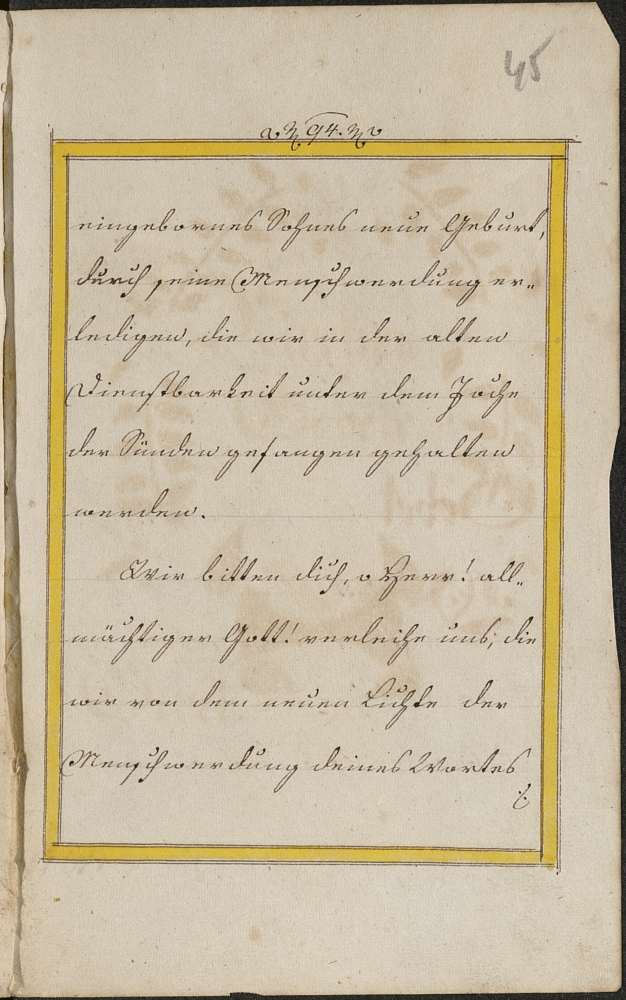 45
94.
eingebornes Sohnes neue Geburt,
durch seine Menschwerdung er-
ledigen, die wir in der alten
Dienstbarkeit unter dem Joche
der Sünden gefangen gehalten
werden.
Wir bitten dich, o Herr! all-
mächtiger Gott! verleihe uns, die
wir von dem neuen Lichte der
Menschwerdung deines Wortes